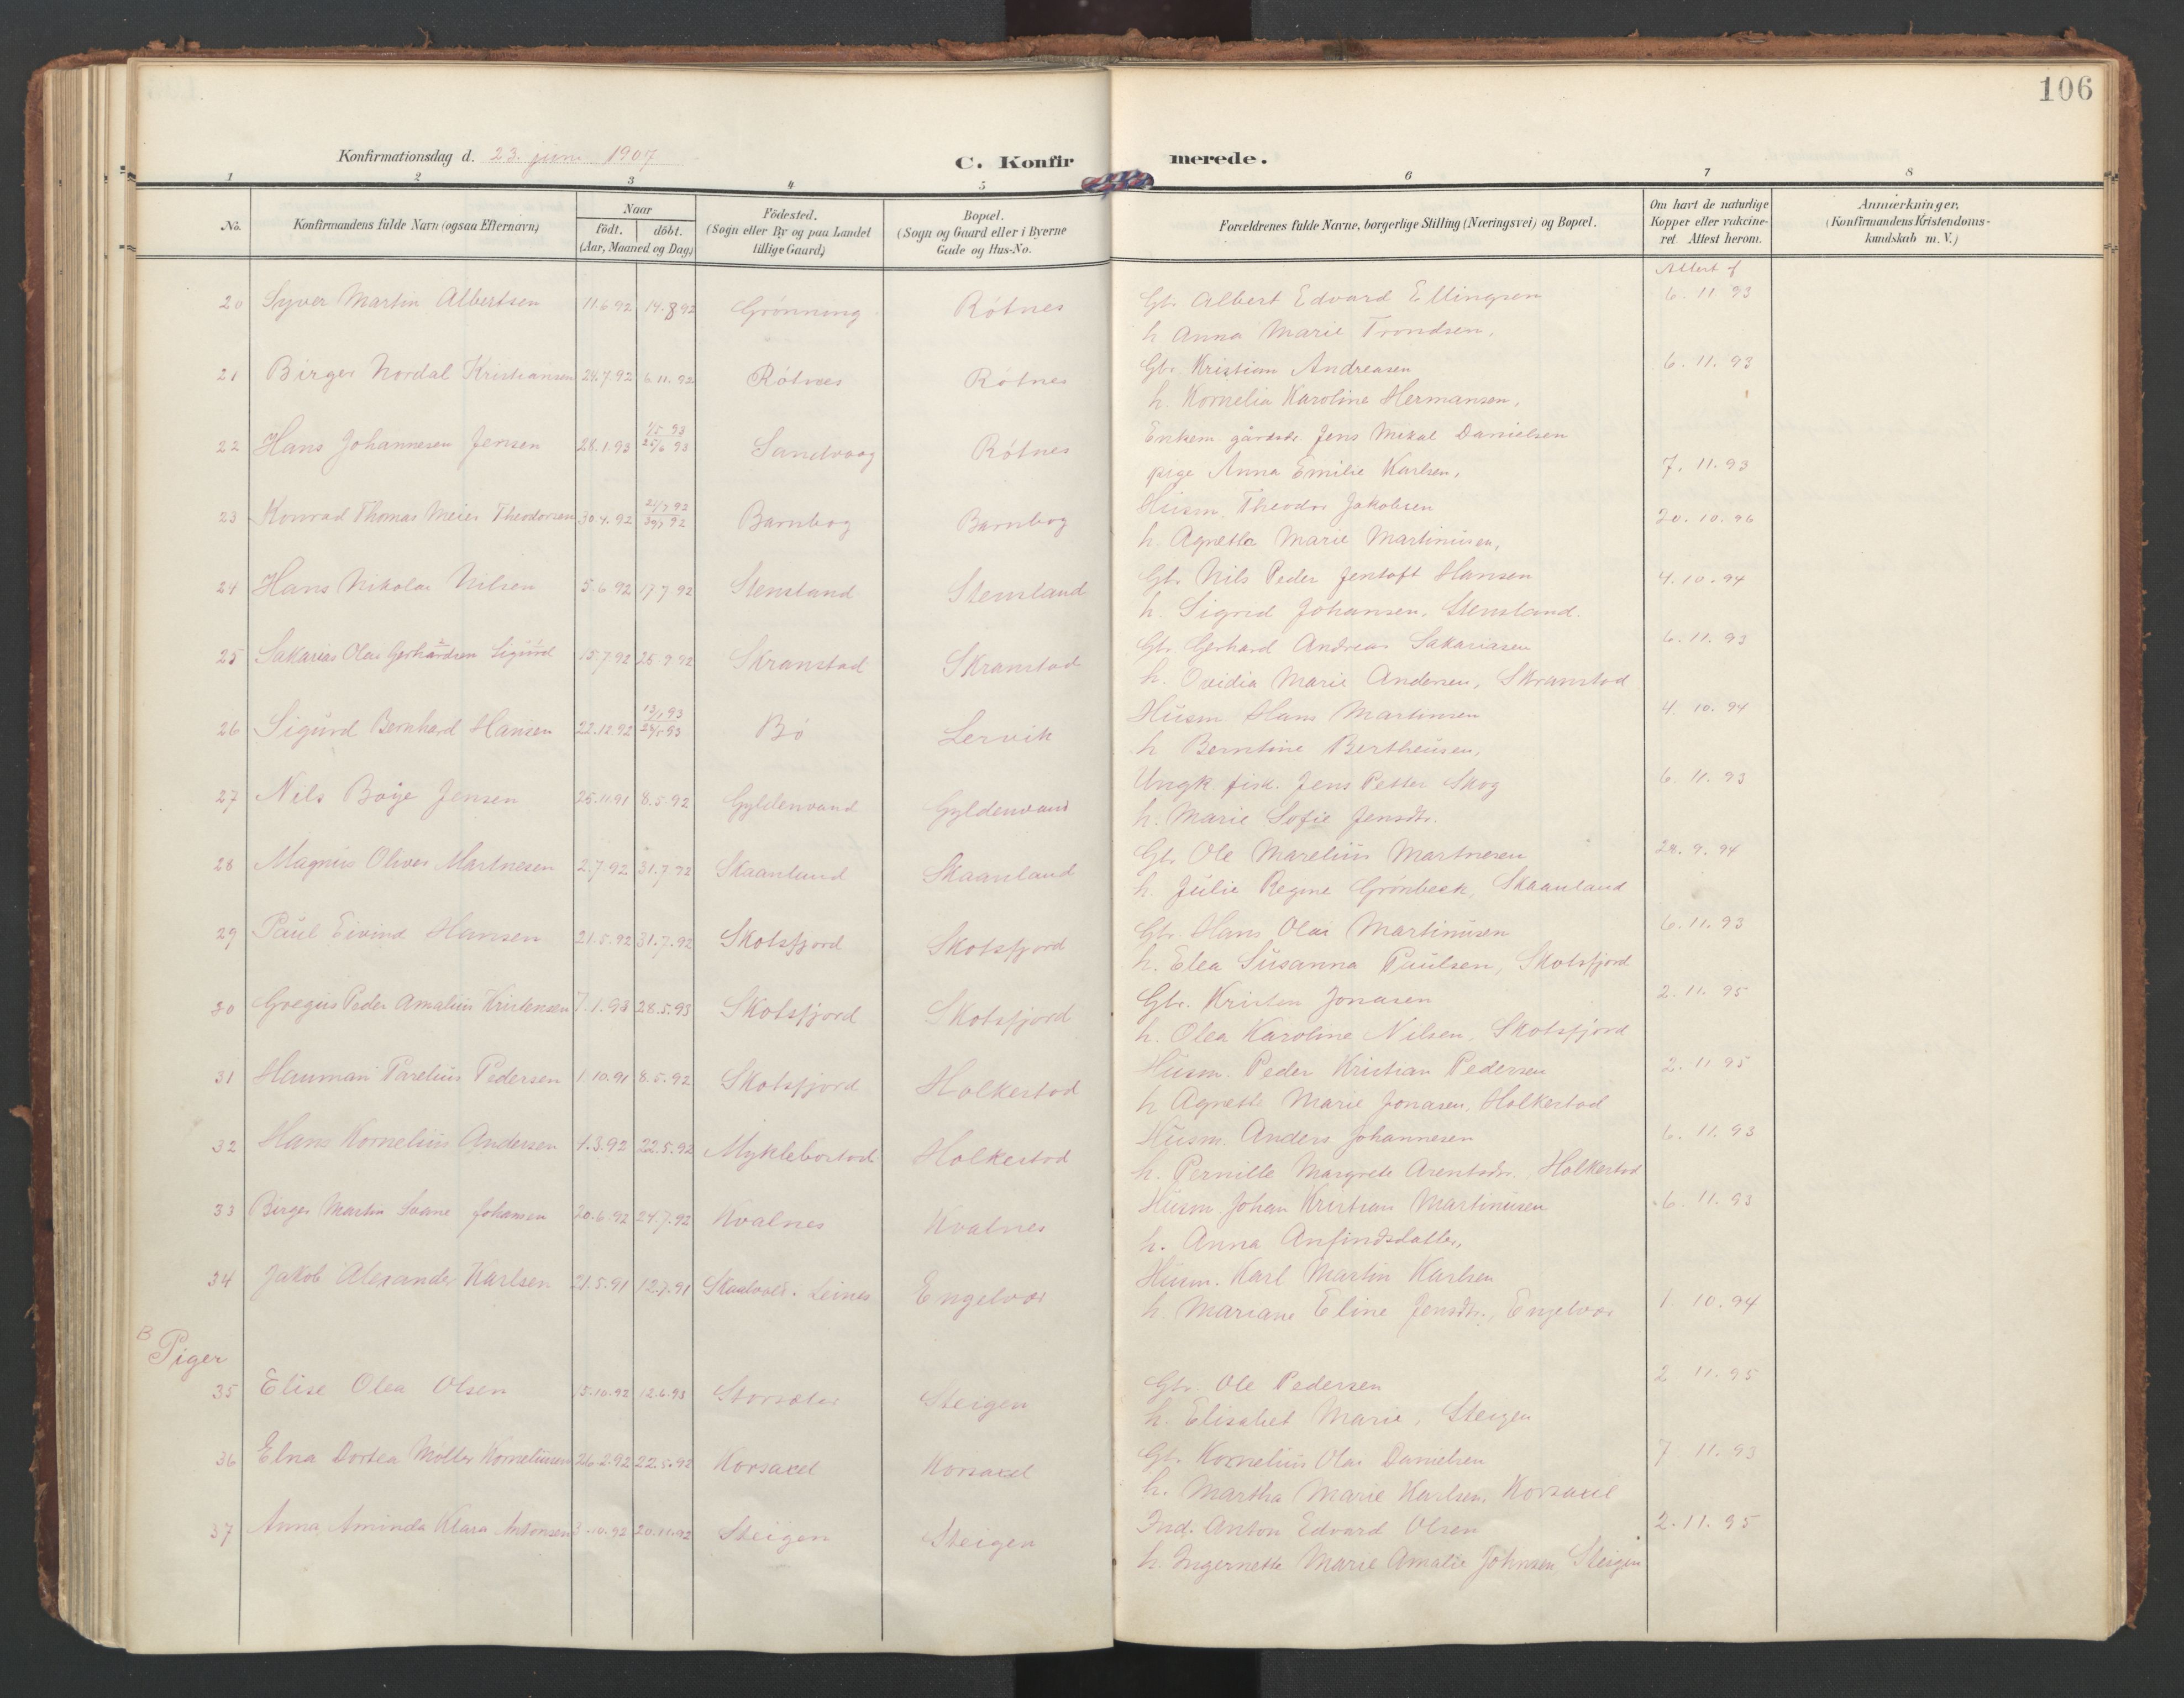 106
Konfirmationsdag d. 23. juni 1907
C. Konfirmerede.
1 2 3 4 5 6 7 8
No. Konfirmandens fulde Navn (ogsaa Efternavn) Naar födt. döbt. (Aar, Maaned og Dag) Födested. (Sogn eller By og paa Landet tillige Gaard) Bopæl. (Sogn og Gaard eller i Byerne Gade og Hus-No. Forældrenes fulde Navne, borgerlige Stilling (Næringsvei) og Bopæl. Om havt de naturlige Kopper eller vakcineret. Attest herom. Anmærkninger, (Konfirmandens Kristendomskundskab m. V.)
Attest af
20 Syver Martin Albertsen 11.6.92 14.8 92 Grönning Rötnes Gbr. Albert Edvard Ellingsen 6.11.93
h. Anna Marie Trondsen,
21 Birger Nordal Kristiansen 24.7.92 6.11.92 Rötnes Rötnes Gbr. Kristian Andreasen 6.11.93
h. Kornelia Karoline Hermansen,
22 Hans Johannesen Jensen 28.1.93 1/5 93 25/6 93 Sandvaag Rötnes Enkem. Jens Mikal Danielsen
pige Anna Emilie Karlsen, 7.11.93
23 Konrad Thomas Meier Theodorsen 30.4.92 Barnbog Barnbog Husm. Theodor Jakobsen 20.10.96
h. Agnetha Marie Martinusen,
24 Hans Nikolai Nilsen 5.6.92 17.7.92 Stensland Stensland Gbr. Nils Peder Jentoft Hansen 4.10.94
h. Sigrid Johansen, Stensland.
25 Sakarias Olai Gerhardsen Sigurd 15.7.92 25.9.92 Skranstad Skranstad Gbr. Gerhard Andreas Sakariasen 6.11.93
h. Ovidia Marie Andersen, Skranstad
26 Sigurd Bernhard Hansen 22.12.92 Bö Lervik Husm. Hans Martinsen 4.10.94
h Berntine Bertheusen,
27 Nils Boye Jensen 25.11.91 8.5.92 Gyldenvand Gyldenvand Ungk fisk. Jens Petter Skog 6.11.93
h. Marie Sofie Jensdtr.
28 Magnus Oliver Martnesen 2.7.92 31.7.92 Skaanland Skaanland Gbr. Ole Marelius Martnesen 28.9.94
h. Julie Regine Grönbeck, Skaanland
29 Paul Eivind Hansen 21.5.92 31.7.92 Skotsfjord Skotsfjord Gbr. Hans Olai Martinusen 6.11.93
h. Elea Susanna Paulsen, Skotsfjord
30 Gregus Peder Amalius Kristensen 7.1.93 28.5.93 Skotsfjord Skotsfjord Gbr. Kristen Jonasen 2.11.95
h. Olea Karoline Nilsen, Skotsfjord
31 Hauman Parelius Pedersen 1.10.91 8.5.92 Skotsfjord Holkestad Husm. Peder Kristian Pedersen 2.11.95
h Agnethe Marie Jonasen, Holkestad
32 Hans Kornelius Andersen 1.3.92 22.5.92 Myklebostad Holkestad Husm. Anders Johannesen 6.11.93
h. Pernille Margrete Arentsdtr., Holkestad
33 Birger Martin Svane Johansen 20.6.92 24.7.92 Kvalnes Kvalnes Husm. Johan Kristian Martinusen 6.11.93
h. Anna Anfindsdatter,
34 Jakob Alexander Karlsen 21.5.91 12.7.91 Leines Engelvær Husm. Karl Martin Karlsen
h. Mariane Eline Jensdtr., Engelvær 1.10.94
B
Piger
35 Elise Olea Olsen 15.10.92 12.6.93 Storsæter Steigen Gbr. Ole Pedersen 2 11.95
h. Elisabet Marie, Steigen
36 Elna Dortea Möller Korneliussen 26.2.92 22.5.92 Korsaxel Korsaxel Gbr. Kornelius Olai Danielsen 7 11.93
h. Martha Marie Karlsen, Korsaxel
37 Anna Aminda Klara Antonsen 3.10.92 20.11.92 Steigen Steigen Ind. Anton Edvard Olsen 2.11.95
h. Ingernette Marie Amalie Johnsen, Steigen